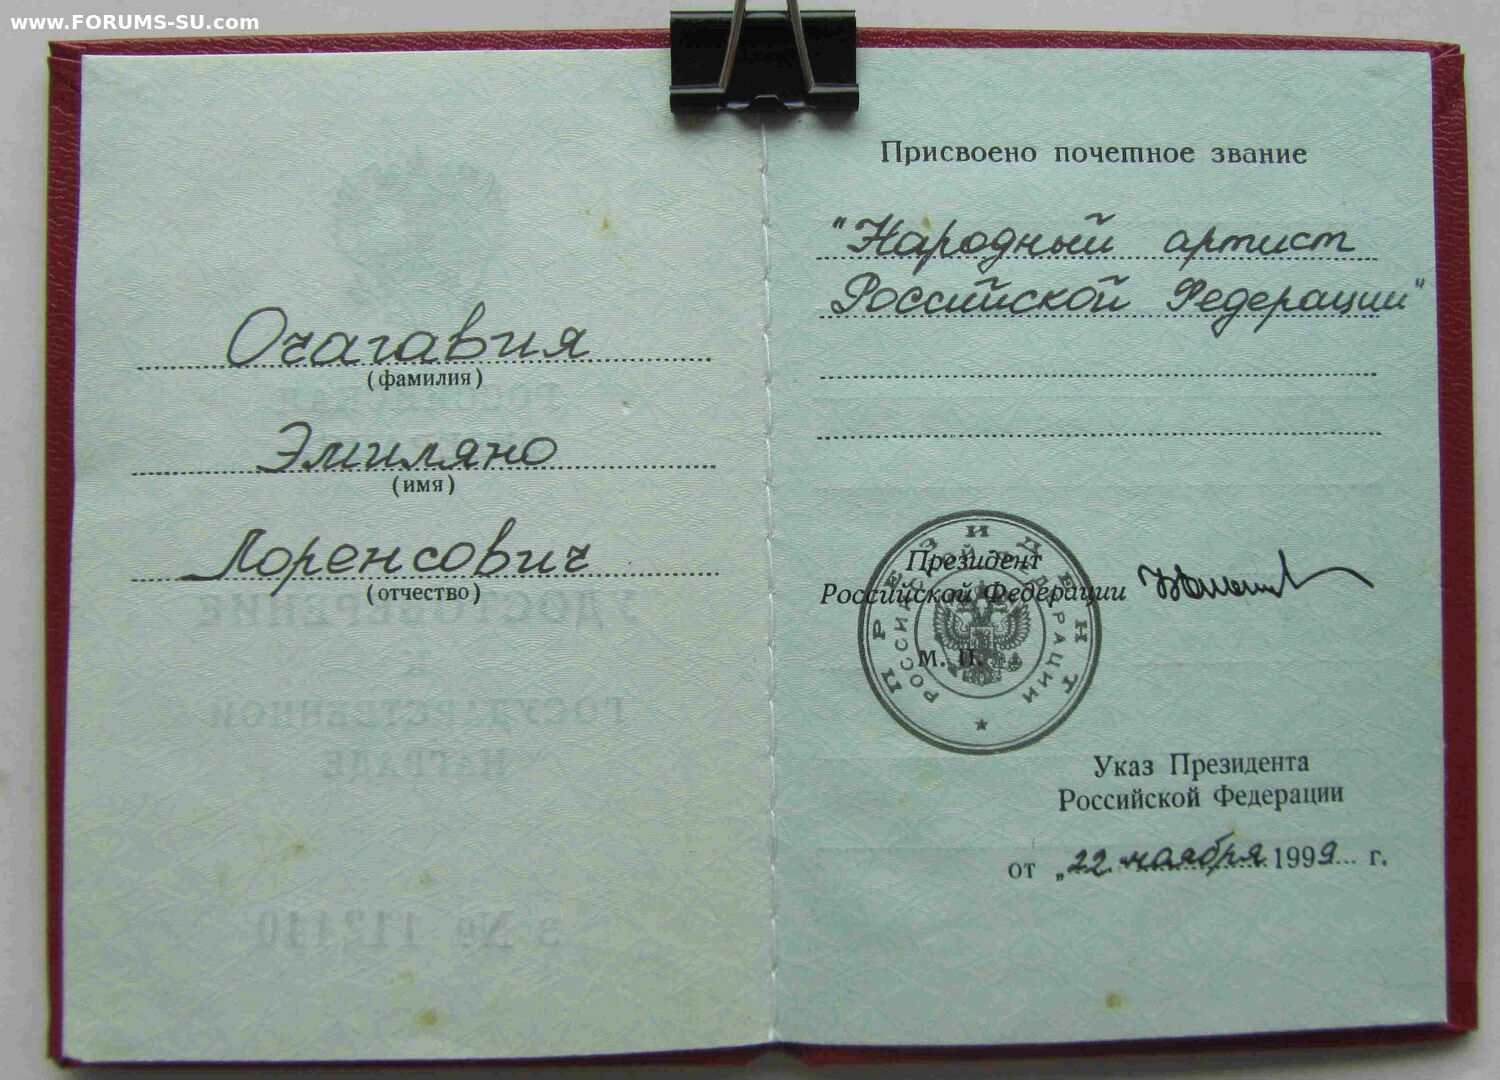 www.FORUMS-SU.com
Очагавия
(фамилия)
Эмиляно
(имя)
Лоренсович
(отчество)
РОССИЙСКАЯ
УДОСТОВЕРЕНИЕ
К
ГОСУДАРСТВЕННОЙ
НАГРАДЕ
З №
Присвоено почетное звание
"Народный артист
Российской Федерации"
Президент
Российской Федерации
М. П.
ПРЕЗИДЕНТ
РОССИЙСКОЙ ФЕДЕРАЦИИ
Указ Президента
Российской Федерации
от „22 ноября 1999 г.